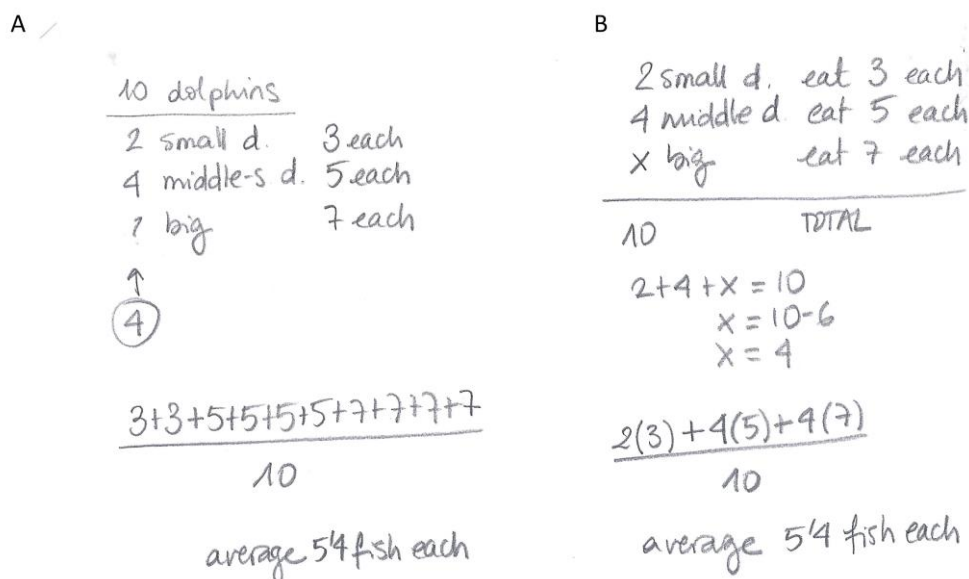 A
10 dolphins
2 small d. 3 each
4 middle-s d. 5 each
? big 7 each
↑
4
3+3+5+5+5+5+7+7+7+7
10
average 5'4 fish each
B
2 small d. eat 3 each
4 middle d. eat 5 each
x big eat 7 each
10 TOTAL
2+4+x = 10
x = 10-6
x = 4
2(3) + 4(5) + 4(7)
10
average 5'4 fish each